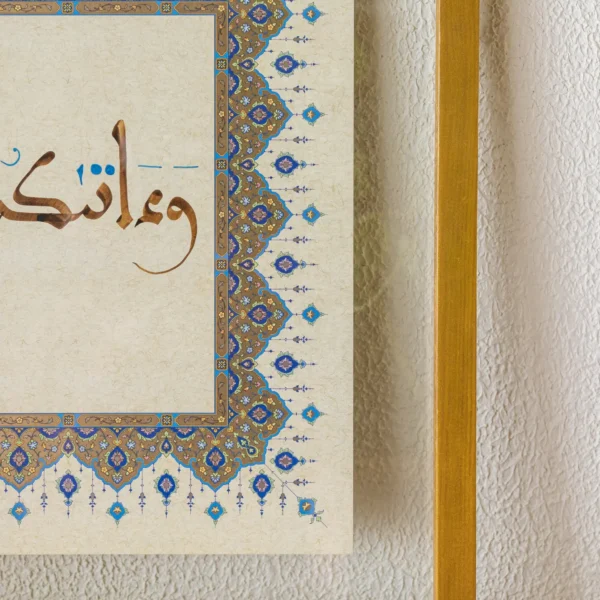 وَءَاتىٰكُم